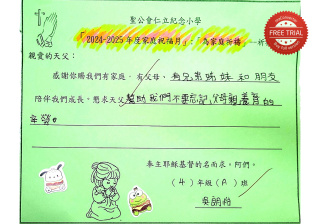 聖公會仁立紀念小學
「2024-2025年度家庭祝福月」:「為家庭祈禱」
親愛的天父:
感謝你賜我們有家庭,有父母,有兄弟姊妹和朋友
陪伴我們成長,懇求天父幫助我們不要忘記父母親養育的
辛勞。
奉主耶穌基督的名而求,阿們。
(4)年級(A)班
FREE TRIAL